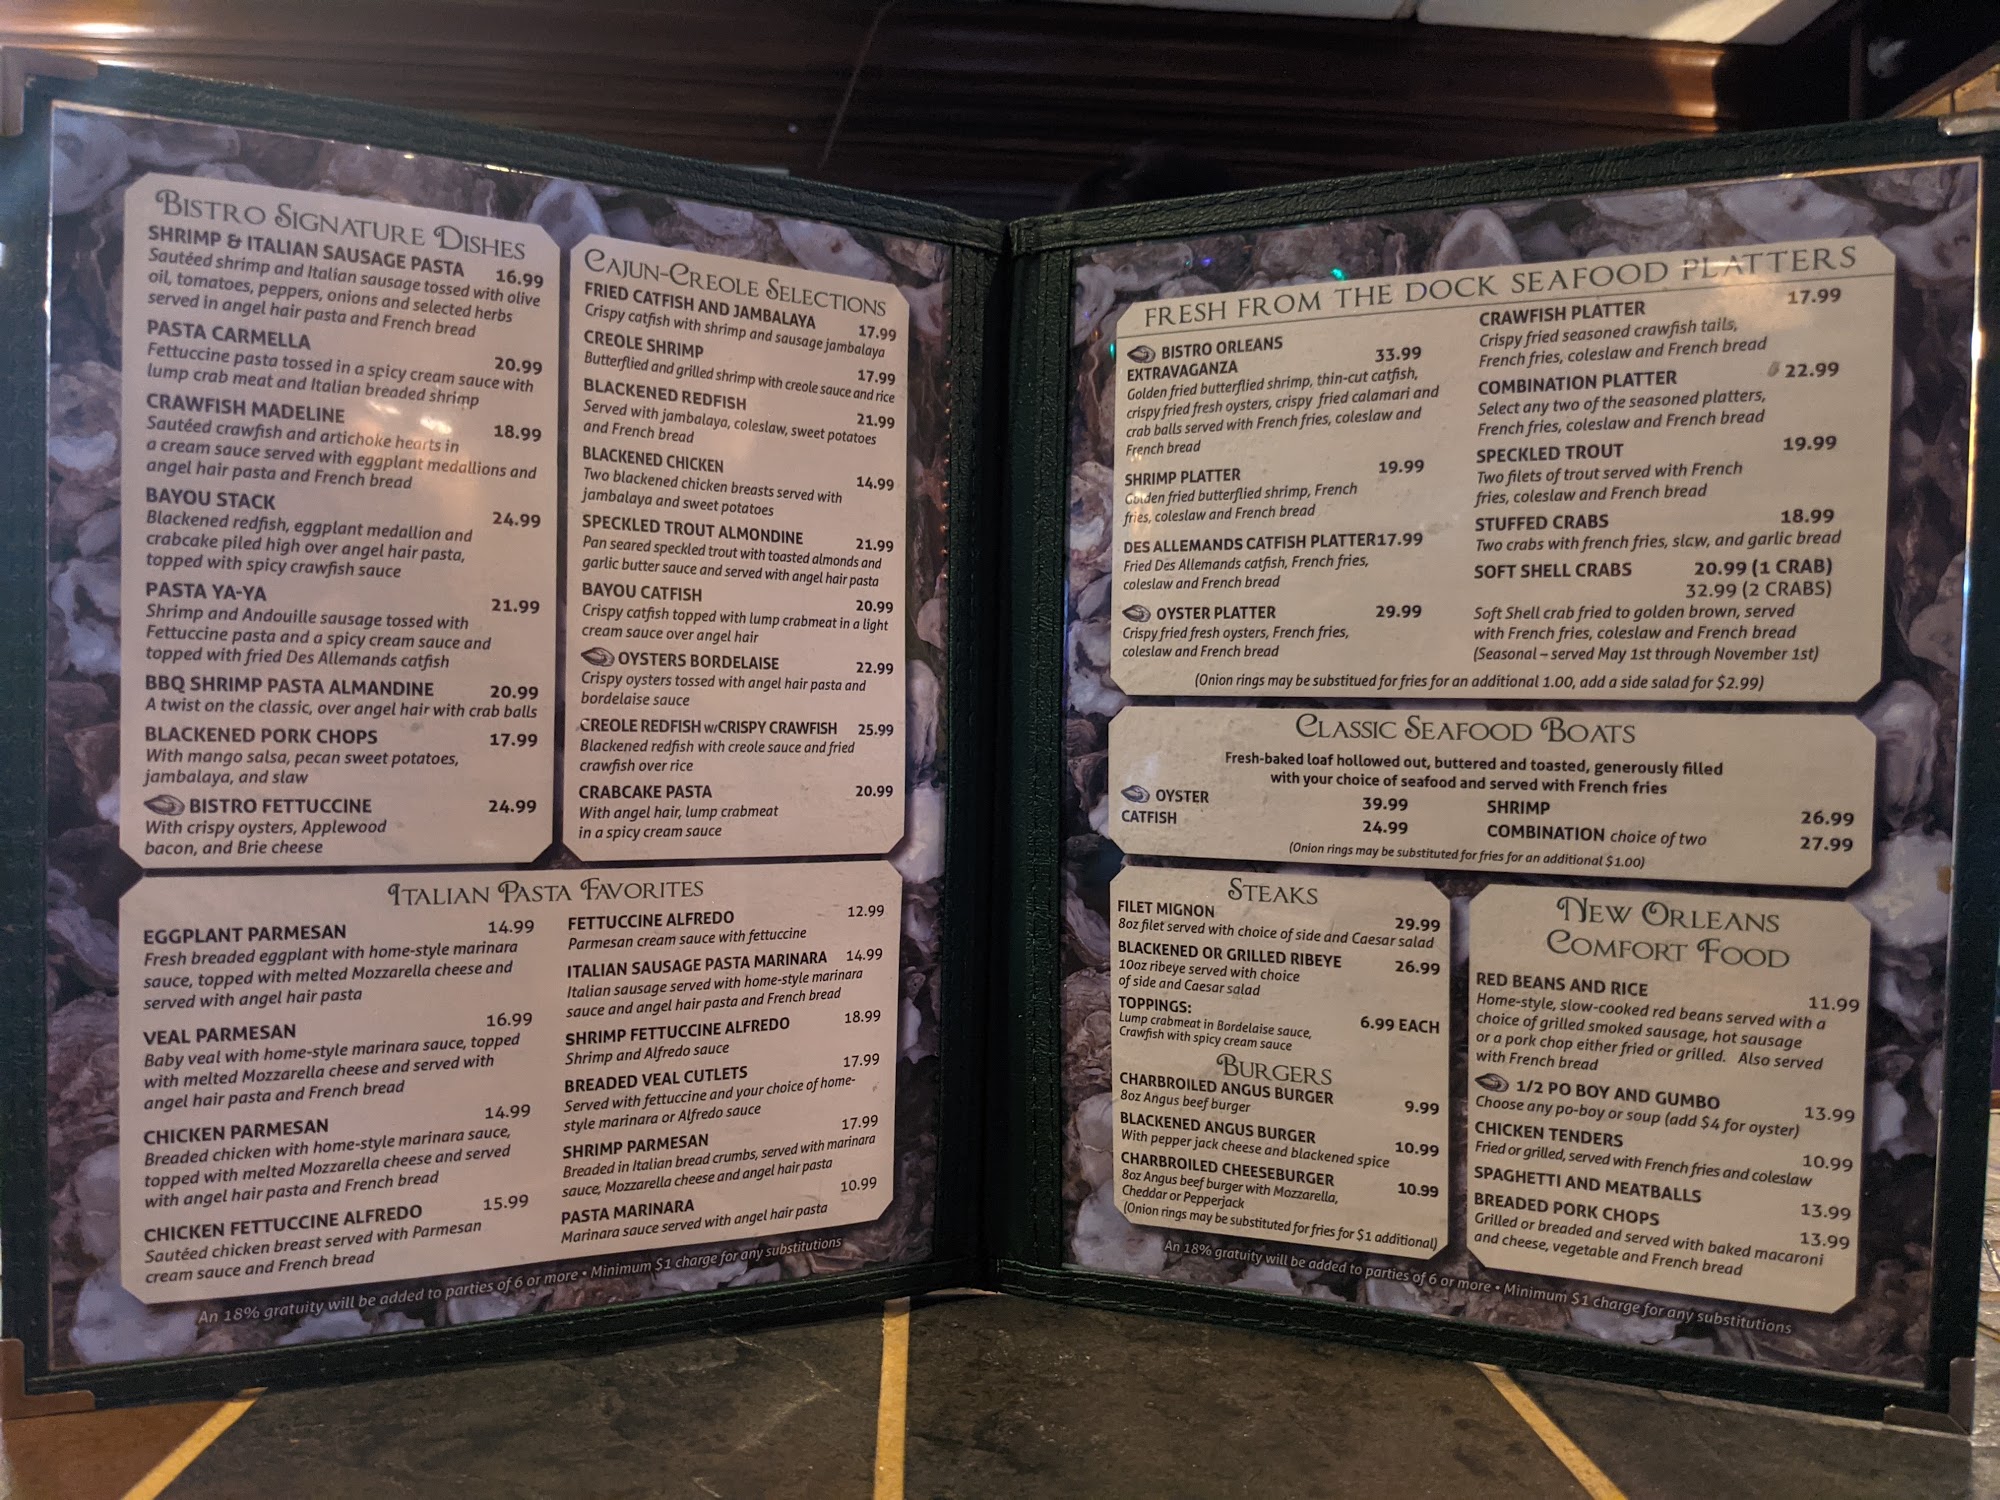 BISTRO SIGNATURE DISHES
SHRIMP & ITALIAN SAUSAGE PASTA 16.99
Sautéed shrimp and Italian sausage tossed with olive
oil, tomatoes, peppers, onions and selected herbs
served in angel hair pasta and French bread
PASTA CARMELLA 20.99
Fettuccine pasta tossed in a spicy cream sauce with
lump crab meat and Italian breaded shrimp
CRAWFISH MADELINE 18.99
Sautéed crawfish and artichoke hearts in
a cream sauce served with eggplant medallions and
angel hair pasta and French bread
BAYOU STACK 24.99
Blackened redfish, eggplant medallion and
crabcake piled high over angel hair pasta,
topped with spicy crawfish sauce
PASTA YA-YA 21.99
Shrimp and Andouille sausage tossed with
Fettuccine pasta and a spicy cream sauce and
topped with fried Des Allemands catfish
BBQ SHRIMP PASTA ALMANDINE 20.99
A twist on the classic, over angel hair with crab balls
BLACKENED PORK CHOPS 17.99
With mango salsa, pecan sweet potatoes,
jambalaya, and slaw
BISTRO FETTUCCINE 24.99
With crispy oysters, Applewood
bacon, and Brie cheese
CAJUN-CREOLE SELECTIONS
FRIED CATFISH AND JAMBALAYA 17.99
Crispy catfish with shrimp and sausage jambalaya
CREOLE SHRIMP 17.99
Butterflied and grilled shrimp with creole sauce and rice
BLACKENED REDFISH 21.99
Served with jambalaya, coleslaw, sweet potatoes
and French bread
BLACKENED CHICKEN 14.99
Two blackened chicken breasts served with
jambalaya and sweet potatoes
SPECKLED TROUT ALMONDINE 21.99
Pan seared speckled trout with toasted almonds and
garlic butter sauce and served with angel hair pasta
BAYOU CATFISH 20.99
Crispy catfish topped with lump crabmeat in a light
cream sauce over angel hair
OYSTERS BORDELAISE 22.99
Crispy oysters tossed with angel hair pasta and
bordelaise sauce
CREOLE REDFISH W/CRISPY CRAWFISH 25.99
Blackened redfish with creole sauce and fried
crawfish over rice
CRABCAKE PASTA 20.99
With angel hair, lump crabmeat
in a spicy cream sauce
ITALIAN PASTA FAVORITES
EGGPLANT PARMESAN 14.99
Fresh breaded eggplant with home-style marinara
sauce, topped with melted Mozzarella cheese and
served with angel hair pasta
VEAL PARMESAN 16.99
Baby veal with home-style marinara sauce, topped
with melted Mozzarella cheese and served with
angel hair pasta and French bread
CHICKEN PARMESAN 14.99
Breaded chicken with home-style marinara sauce,
topped with melted Mozzarella cheese and served
with angel hair pasta and French bread
CHICKEN FETTUCCINE ALFREDO 15.99
Sautéed chicken breast served with Parmesan
cream sauce and French bread
FETTUCCINE ALFREDO 12.99
Parmesan cream sauce with fettuccine
ITALIAN SAUSAGE PASTA MARINARA 14.99
Italian sausage served with home-style marinara
sauce and angel hair pasta and French bread
SHRIMP FETTUCCINE ALFREDO 18.99
Shrimp and Alfredo sauce
BREADED VEAL CUTLETS 17.99
Served with fettuccine and your choice of home-
style marinara or Alfredo sauce
SHRIMP PARMESAN 17.99
Breaded in Italian bread crumbs, served with marinara
sauce, Mozzarella cheese and angel hair pasta
PASTA MARINARA 10.99
Marinara sauce served with angel hair pasta
An 18% gratuity will be added to parties of 6 or more • Minimum $1 charge for any substitutions
FRESH FROM THE DOCK SEAFOOD PLATTERS
BISTRO ORLEANS 33.99
EXTRAVAGANZA
Golden fried butterflied shrimp, thin-cut catfish,
crispy fried fresh oysters, crispy fried calamari and
crab balls served with French fries, coleslaw and
French bread
SHRIMP PLATTER 19.99
Golden fried butterflied shrimp, French
fries, coleslaw and French bread
DES ALLEMANDS CATFISH PLATTER 17.99
Fried Des Allemands catfish, French fries,
coleslaw and French bread
OYSTER PLATTER 29.99
Crispy fried fresh oysters, French fries,
coleslaw and French bread
CRAWFISH PLATTER 17.99
Crispy fried seasoned crawfish tails,
French fries, coleslaw and French bread
COMBINATION PLATTER 22.99
Select any two of the seasoned platters,
French fries, coleslaw and French bread
SPECKLED TROUT 19.99
Two filets of trout served with French
fries, coleslaw and French bread
STUFFED CRABS 18.99
Two crabs with french fries, slaw, and garlic bread
SOFT SHELL CRABS 20.99 (1 CRAB)
32.99 (2 CRABS)
Soft Shell crab fried to golden brown, served
with French fries, coleslaw and French bread
(Seasonal – served May 1st through November 1st)
(Onion rings may be substitued for fries for an additional 1.00, add a side salad for $2.99)
CLASSIC SEAFOOD BOATS
Fresh-baked loaf hollowed out, buttered and toasted, generously filled
with your choice of seafood and served with French fries
OYSTER 39.99
CATFISH 24.99
SHRIMP 26.99
COMBINATION choice of two 27.99
(Onion rings may be substituted for fries for an additional $1.00)
STEAKS
FILET MIGNON 29.99
8oz filet served with choice of side and Caesar salad
BLACKENED OR GRILLED RIBEYE 26.99
10oz ribeye served with choice
of side and Caesar salad
TOPPINGS: 6.99 EACH
Lump crabmeat in Bordelaise sauce,
Crawfish with spicy cream sauce
BURGERS
CHARBROILED ANGUS BURGER 9.99
8oz Angus beef burger
BLACKENED ANGUS BURGER 10.99
With pepper jack cheese and blackened spice
CHARBROILED CHEESEBURGER 10.99
8oz Angus beef burger with Mozzarella,
Cheddar or Pepperjack
(Onion rings may be substituted for fries for $1 additional)
NEW ORLEANS
COMFORT FOOD
RED BEANS AND RICE 11.99
Home-style, slow-cooked red beans served with a
choice of grilled smoked sausage, hot sausage
or a pork chop either fried or grilled. Also served
with French bread
1/2 PO BOY AND GUMBO 13.99
Choose any po-boy or soup (add $4 for oyster)
CHICKEN TENDERS 10.99
Fried or grilled, served with French fries and coleslaw
SPAGHETTI AND MEATBALLS 13.99
BREADED PORK CHOPS 13.99
Grilled or breaded and served with baked macaroni
and cheese, vegetable and French bread
An 18% gratuity will be added to parties of 6 or more • Minimum $1 charge for any substitutions